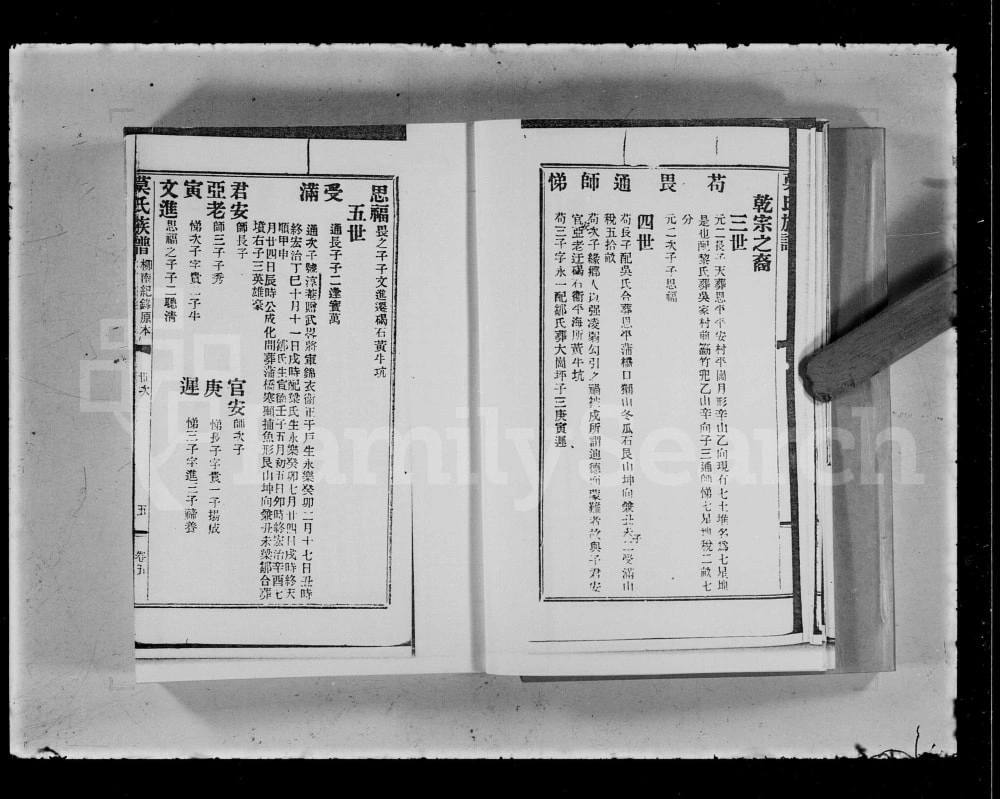 乾宗之裔
三世
苟
元二長子天葬思平平安村平崗月形辛山乙向現有七土堆名爲七星地
是也配黎氏葬吳家村前簕竹兜乙山辛向子三通師悌七星地稅二畝七
分
畏
元二次子子思福
四世
通
苟長子配吳氏合葬恩平蒲橋口獺山冬瓜石艮山坤向兼丑未子二受滿山
稅五拾畝
師
苟次子緣鄉人以强凌弱勾引之禍
戍所謂迪德而蒙難者故與子君安
官安亞老迂碣石衛平海所黃牛坑
悌
苟三子字永一配鄒氏葬大崗坪子三庚寅遲
思福
畏之子子文進遷碣石黃牛坑
五世
受
通長子子二達實萬
滿
通次子號淳菴贈武畧將軍錦衣衛正千戶生永樂癸卯二月十七日丑時
終宏治丁巳十月十一日戌時配梁氏生永樂癸卯七月廿四日戌時終天
順甲申鄒氏生宣德壬子五月初五日卯時終宏治辛酉七
月廿四日辰時公成化間葬蒲橋寒獺捕魚形艮山坤向兼丑未梁鄒合葬
墳右子三英雄豪
君安
師長子
官安
師次子
亞老
師三子子秀
庚
悌長子字貫一子揚成
寅
悌次子字貫二子牛
遲
悌三子字進三子
養
文進
思福之子子二聰清
莫氏族譜
柳南紀錄原本
世次
五
卷五
FamilySearch